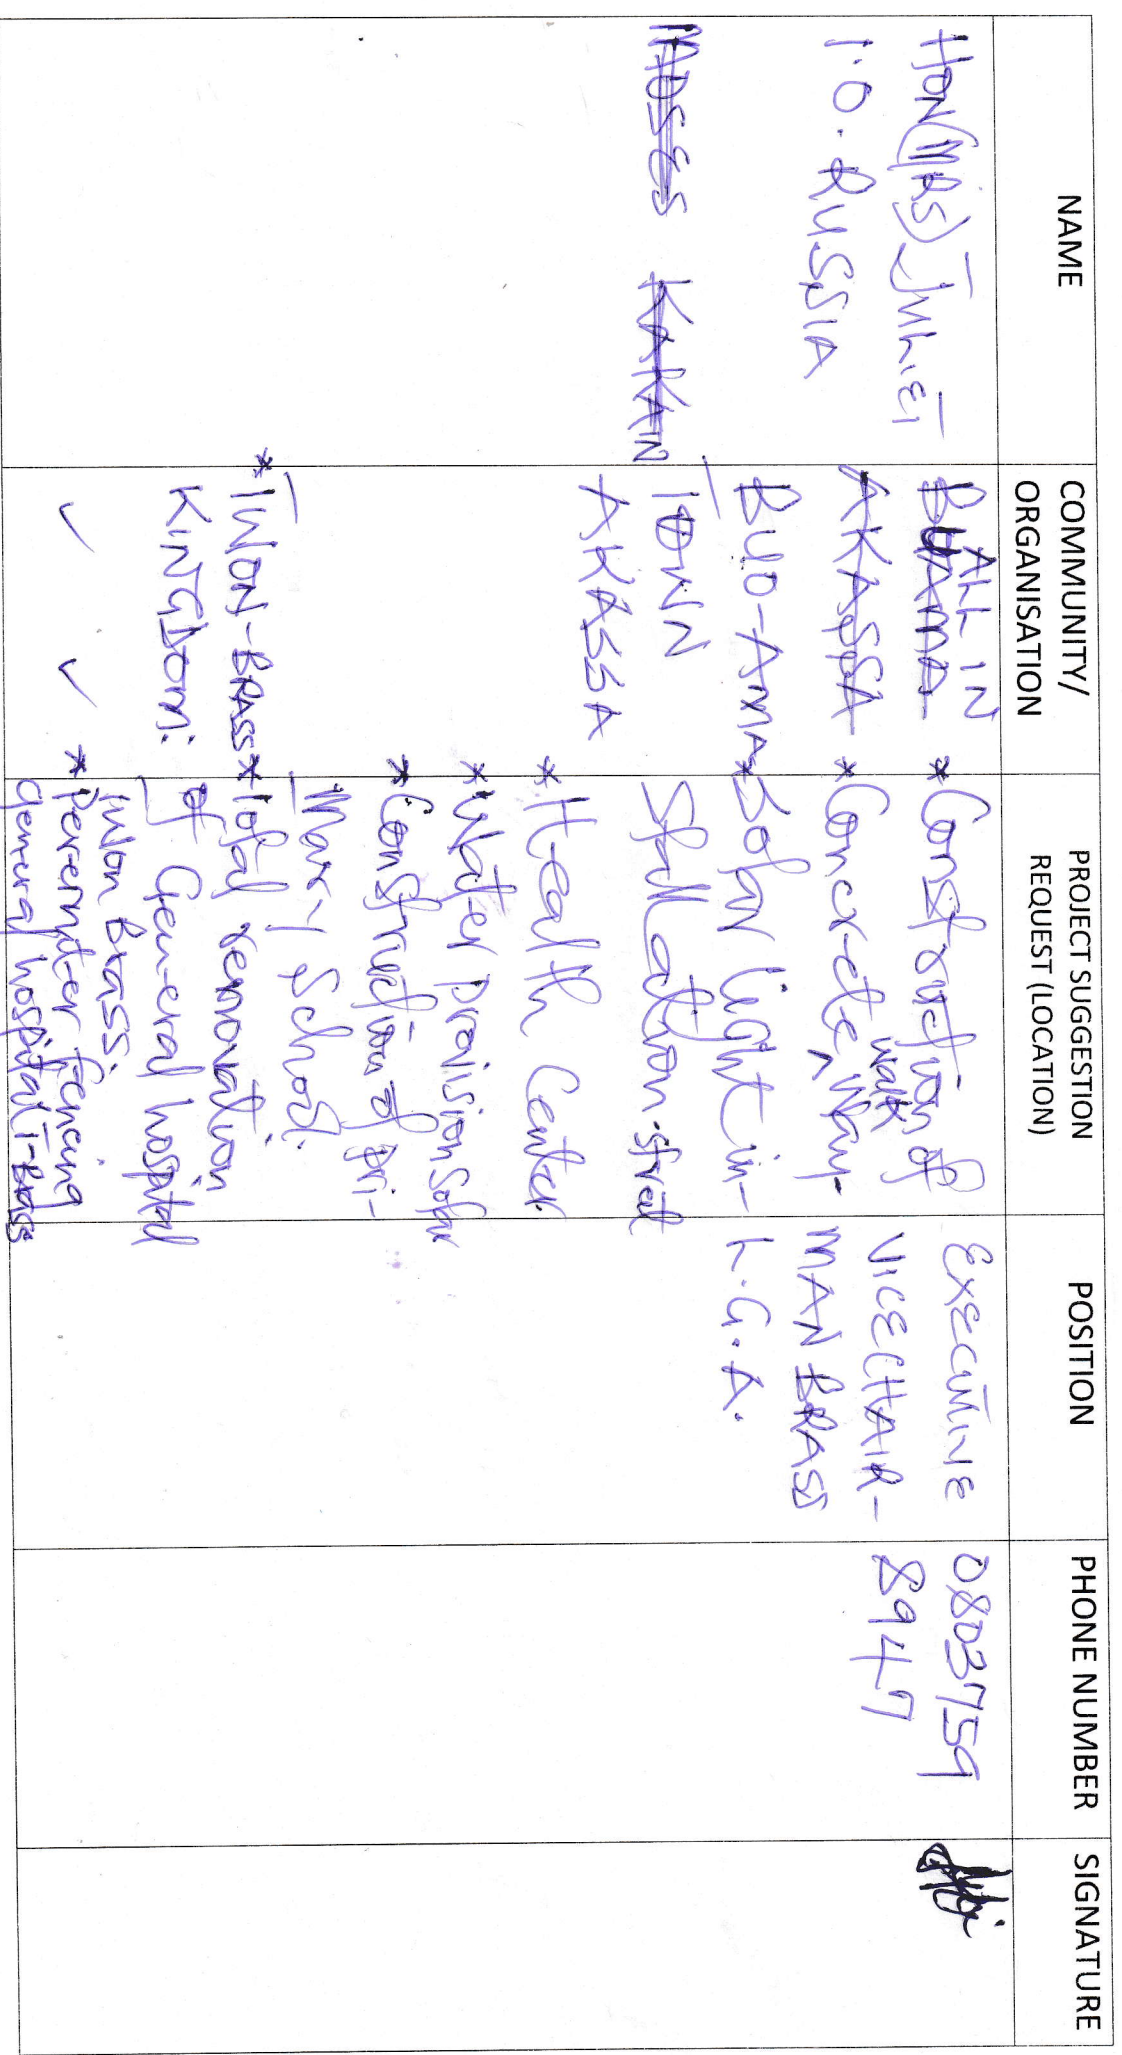 NAME
COMMUNITY/
ORGANISATION
PROJECT SUGGESTION
REQUEST (LOCATION)
POSITION
PHONE NUMBER
SIGNATURE
HON (MRS) JULIET
I.O. RUSSIA
MOSES KAKAIN
ALL IN
BUAMA
AKASSA
BUO-AMA
TOWN
AKASSA
* TWON-BRASS
KINGDOM.
✓ ✓
* Construction of
* Concrete walk way.
* Solar light in-
stallation street
* Health Center
* Water provision Solar
* Construction of Pri-
mary School.
* Total renovation
of General hospital
Twon Brass.
* Peremiter fencing
General hospital T-Brass
EXECUTIVE
VICE CHAIR-
MAN BRASS
L.G.A.
0803759
8947